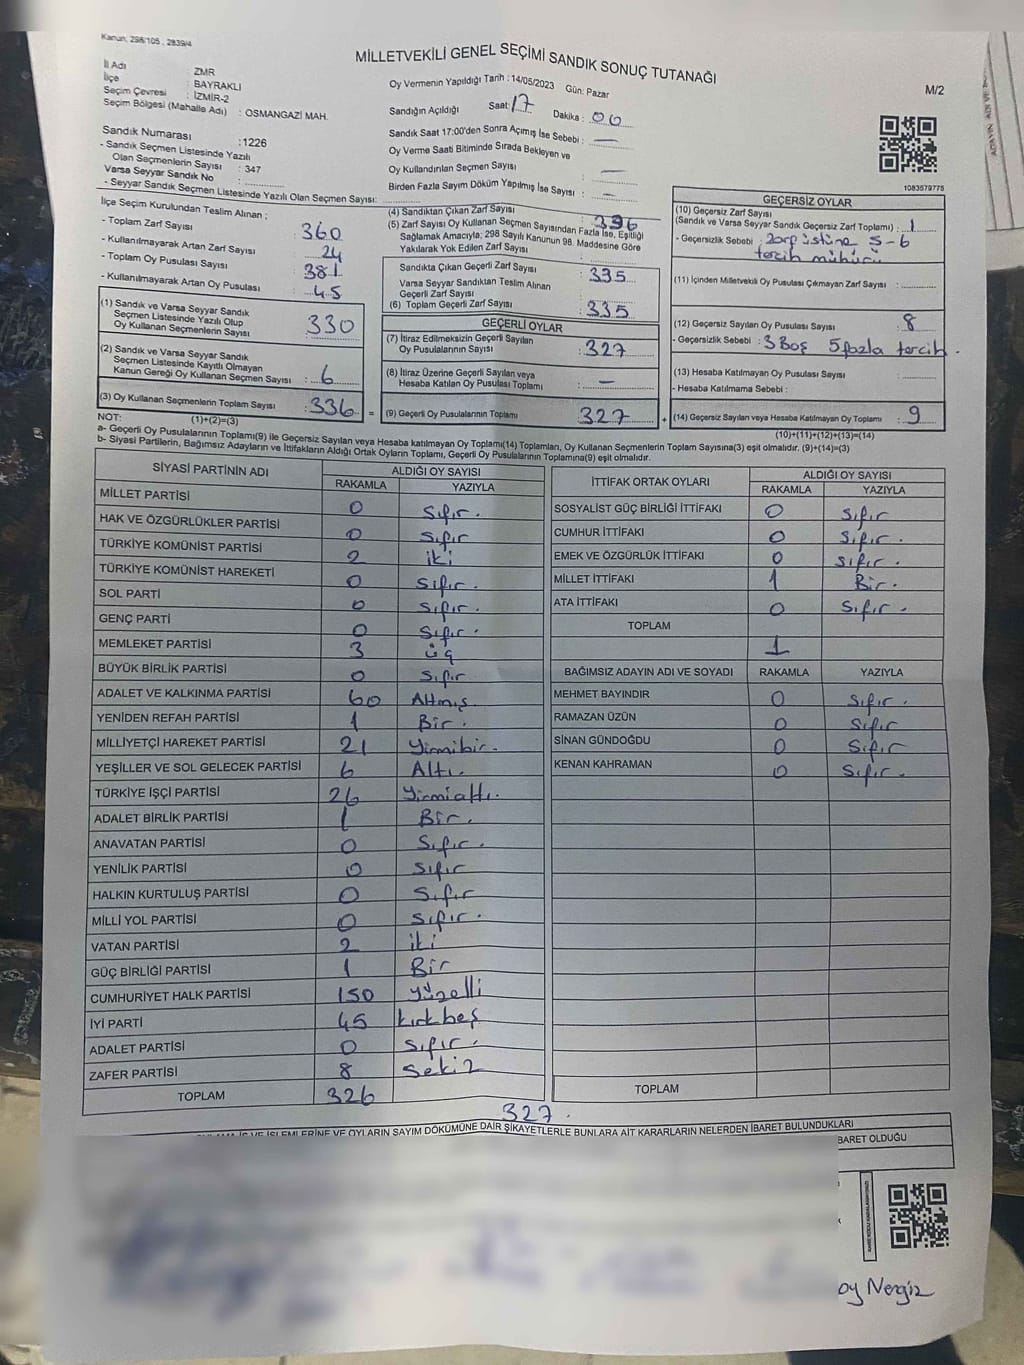 Kanun; 298/105 , 2839/4
MİLLETVEKİLİ GENEL SEÇİMİ SANDIK SONUÇ TUTANAĞI
M/2
İl Adı : ZMR
İlçe : BAYRAKLI
Seçim Çevresi : İZMİR-2
Seçim Bölgesi (Mahalle Adı) : OSMANGAZİ MAH.
Oy Vermenin Yapıldığı Tarih : 14/05/2023 Gün: Pazar
Sandığın Açıldığı Saat : 17 Dakika : 00
Sandık Saat 17:00'den Sonra Açımış İse Sebebi : —
Oy Verme Saati Bitiminde Sırada Bekleyen ve
Oy Kullandırılan Seçmen Sayısı : —
Birden Fazla Sayım Döküm Yapılmış İse Sayısı : —
Sandık Numarası : 1226
- Sandık Seçmen Listesinde Yazılı
Olan Seçmenlerin Sayısı : 347
Varsa Seyyar Sandık No :
- Seyyar Sandık Seçmen Listesinde Yazılı Olan Seçmen Sayısı:
1083579775
İlçe Seçim Kurulundan Teslim Alınan ;
- Toplam Zarf Sayısı : 360
- Kullanılmayarak Artan Zarf Sayısı : 24
- Toplam Oy Pusulası Sayısı : 381
- Kullanılmayarak Artan Oy Pusulası : 45
(1) Sandık ve Varsa Seyyar Sandık
Seçmen Listesinde Yazılı Olup
Oy Kullanan Seçmenlerin Sayısı : 330
(2) Sandık ve Varsa Seyyar Sandık
Seçmen Listesinde Kayıtlı Olmayan
Kanun Gereği Oy Kullanan Seçmen Sayısı : 6
(3) Oy Kullanan Seçmenlerin Toplam Sayısı : 336 =
(1)+(2)=(3)
(4) Sandıktan Çıkan Zarf Sayısı : 336
(5) Zarf Sayısı Oy Kullanan Seçmen Sayısından Fazla İse, Eşitliği
Sağlamak Amacıyla; 298 Sayılı Kanunun 98. Maddesine Göre
Yakılarak Yok Edilen Zarf Sayısı
Sandıkta Çıkan Geçerli Zarf Sayısı : 335
Varsa Seyyar Sandıktan Teslim Alınan
Geçerli Zarf Sayısı
(6) Toplam Geçerli Zarf Sayısı : 335
GEÇERLİ OYLAR
(7) İtiraz Edilmeksizin Geçerli Sayılan
Oy Pusulalarının Sayısı : 327
(8) İtiraz Üzerine Geçerli Sayılan veya
Hesaba Katılan Oy Pusulası Toplamı : —
(9) Geçerli Oy Pusulalarının Toplamı : 327 +
GEÇERSİZ OYLAR
(10) Geçersiz Zarf Sayısı
(Sandık ve Varsa Seyyar Sandık Geçersiz Zarf Toplamı) : 1
- Geçersizlik Sebebi : Zarf üstüne 5-6
tercih mühürü
(11) İçinden Milletvekili Oy Pusulası Çıkmayan Zarf Sayısı :
(12) Geçersiz Sayılan Oy Pusulası Sayısı : 8
- Geçersizlik Sebebi : 3 Boş 5 fazla tercih .
(13) Hesaba Katılmayan Oy Pusulası Sayısı :
- Hesaba Katılmama Sebebi :
(14) Geçersiz Sayılan veya Hesaba Katılmayan Oy Toplamı : 9
(10)+(11)+(12)+(13)=(14)
NOT:
a- Geçerli Oy Pusulalarının Toplamı(9) ile Geçersiz Sayılan veya Hesaba katılmayan Oy Toplamı(14) Toplamları, Oy Kullanan Seçmenlerin Toplam Sayısına(3) eşit olmalıdır. (9)+(14)=(3)
b- Siyasi Partilerin, Bağımsız Adayların ve İttifakların Aldığı Ortak Oyların Toplamı, Geçerli Oy Pusulalarının Toplamına(9) eşit olmalıdır.
SİYASİ PARTİNİN ADI ALDIĞI OY SAYISI
RAKAMLA YAZIYLA
MİLLET PARTİSİ 0 Sıfır.
HAK VE ÖZGÜRLÜKLER PARTİSİ 0 Sıfır
TÜRKİYE KOMÜNİST PARTİSİ 2 iki
TÜRKİYE KOMÜNİST HAREKETİ 0 Sıfır.
SOL PARTİ 0 Sıfır.
GENÇ PARTİ 0 Sıfır.
MEMLEKET PARTİSİ 3 üç
BÜYÜK BİRLİK PARTİSİ 0 Sıfır
ADALET VE KALKINMA PARTİSİ 60 Altmış.
YENİDEN REFAH PARTİSİ 1 Bir.
MİLLİYETÇİ HAREKET PARTİSİ 21 Yirmibir.
YEŞİLLER VE SOL GELECEK PARTİSİ 6 Altı.
TÜRKİYE İŞÇİ PARTİSİ 26 Yirmialtı.
ADALET BİRLİK PARTİSİ 1 Bir.
ANAVATAN PARTİSİ 0 Sıfır.
YENİLİK PARTİSİ 0 Sıfır
HALKIN KURTULUŞ PARTİSİ 0 Sıfır
MİLLİ YOL PARTİSİ 0 Sıfır.
VATAN PARTİSİ 2 iki
GÜÇ BİRLİĞİ PARTİSİ 1 Bir
CUMHURİYET HALK PARTİSİ 150 Yüzelli
İYİ PARTİ 45 kırkbeş
ADALET PARTİSİ 0 Sıfır.
ZAFER PARTİSİ 8 Sekiz
TOPLAM 326
İTTİFAK ORTAK OYLARI ALDIĞI OY SAYISI
RAKAMLA YAZIYLA
SOSYALİST GÜÇ BİRLİĞİ İTTİFAKI 0 Sıfır
CUMHUR İTTİFAKI 0 Sıfır.
EMEK VE ÖZGÜRLÜK İTTİFAKI 0 Sıfır.
MİLLET İTTİFAKI 1 Bir.
ATA İTTİFAKI 0 Sıfır.
TOPLAM 1
BAĞIMSIZ ADAYIN ADI VE SOYADI RAKAMLA YAZIYLA
MEHMET BAYINDIR 0 Sıfır.
RAMAZAN ÜZÜN 0 Sıfır
SİNAN GÜNDOĞDU 0 Sıfır
KENAN KAHRAMAN 0 Sıfır.
TOPLAM
327.
İŞ VE İŞLEMLERİNE VE OYLARIN SAYIM DÖKÜMÜNE DAİR ŞİKAYETLERLE BUNLARA AİT KARARLARIN NELERDEN İBARET BULUNDUKLARI
BARET OLDUĞU
oy Nergiz